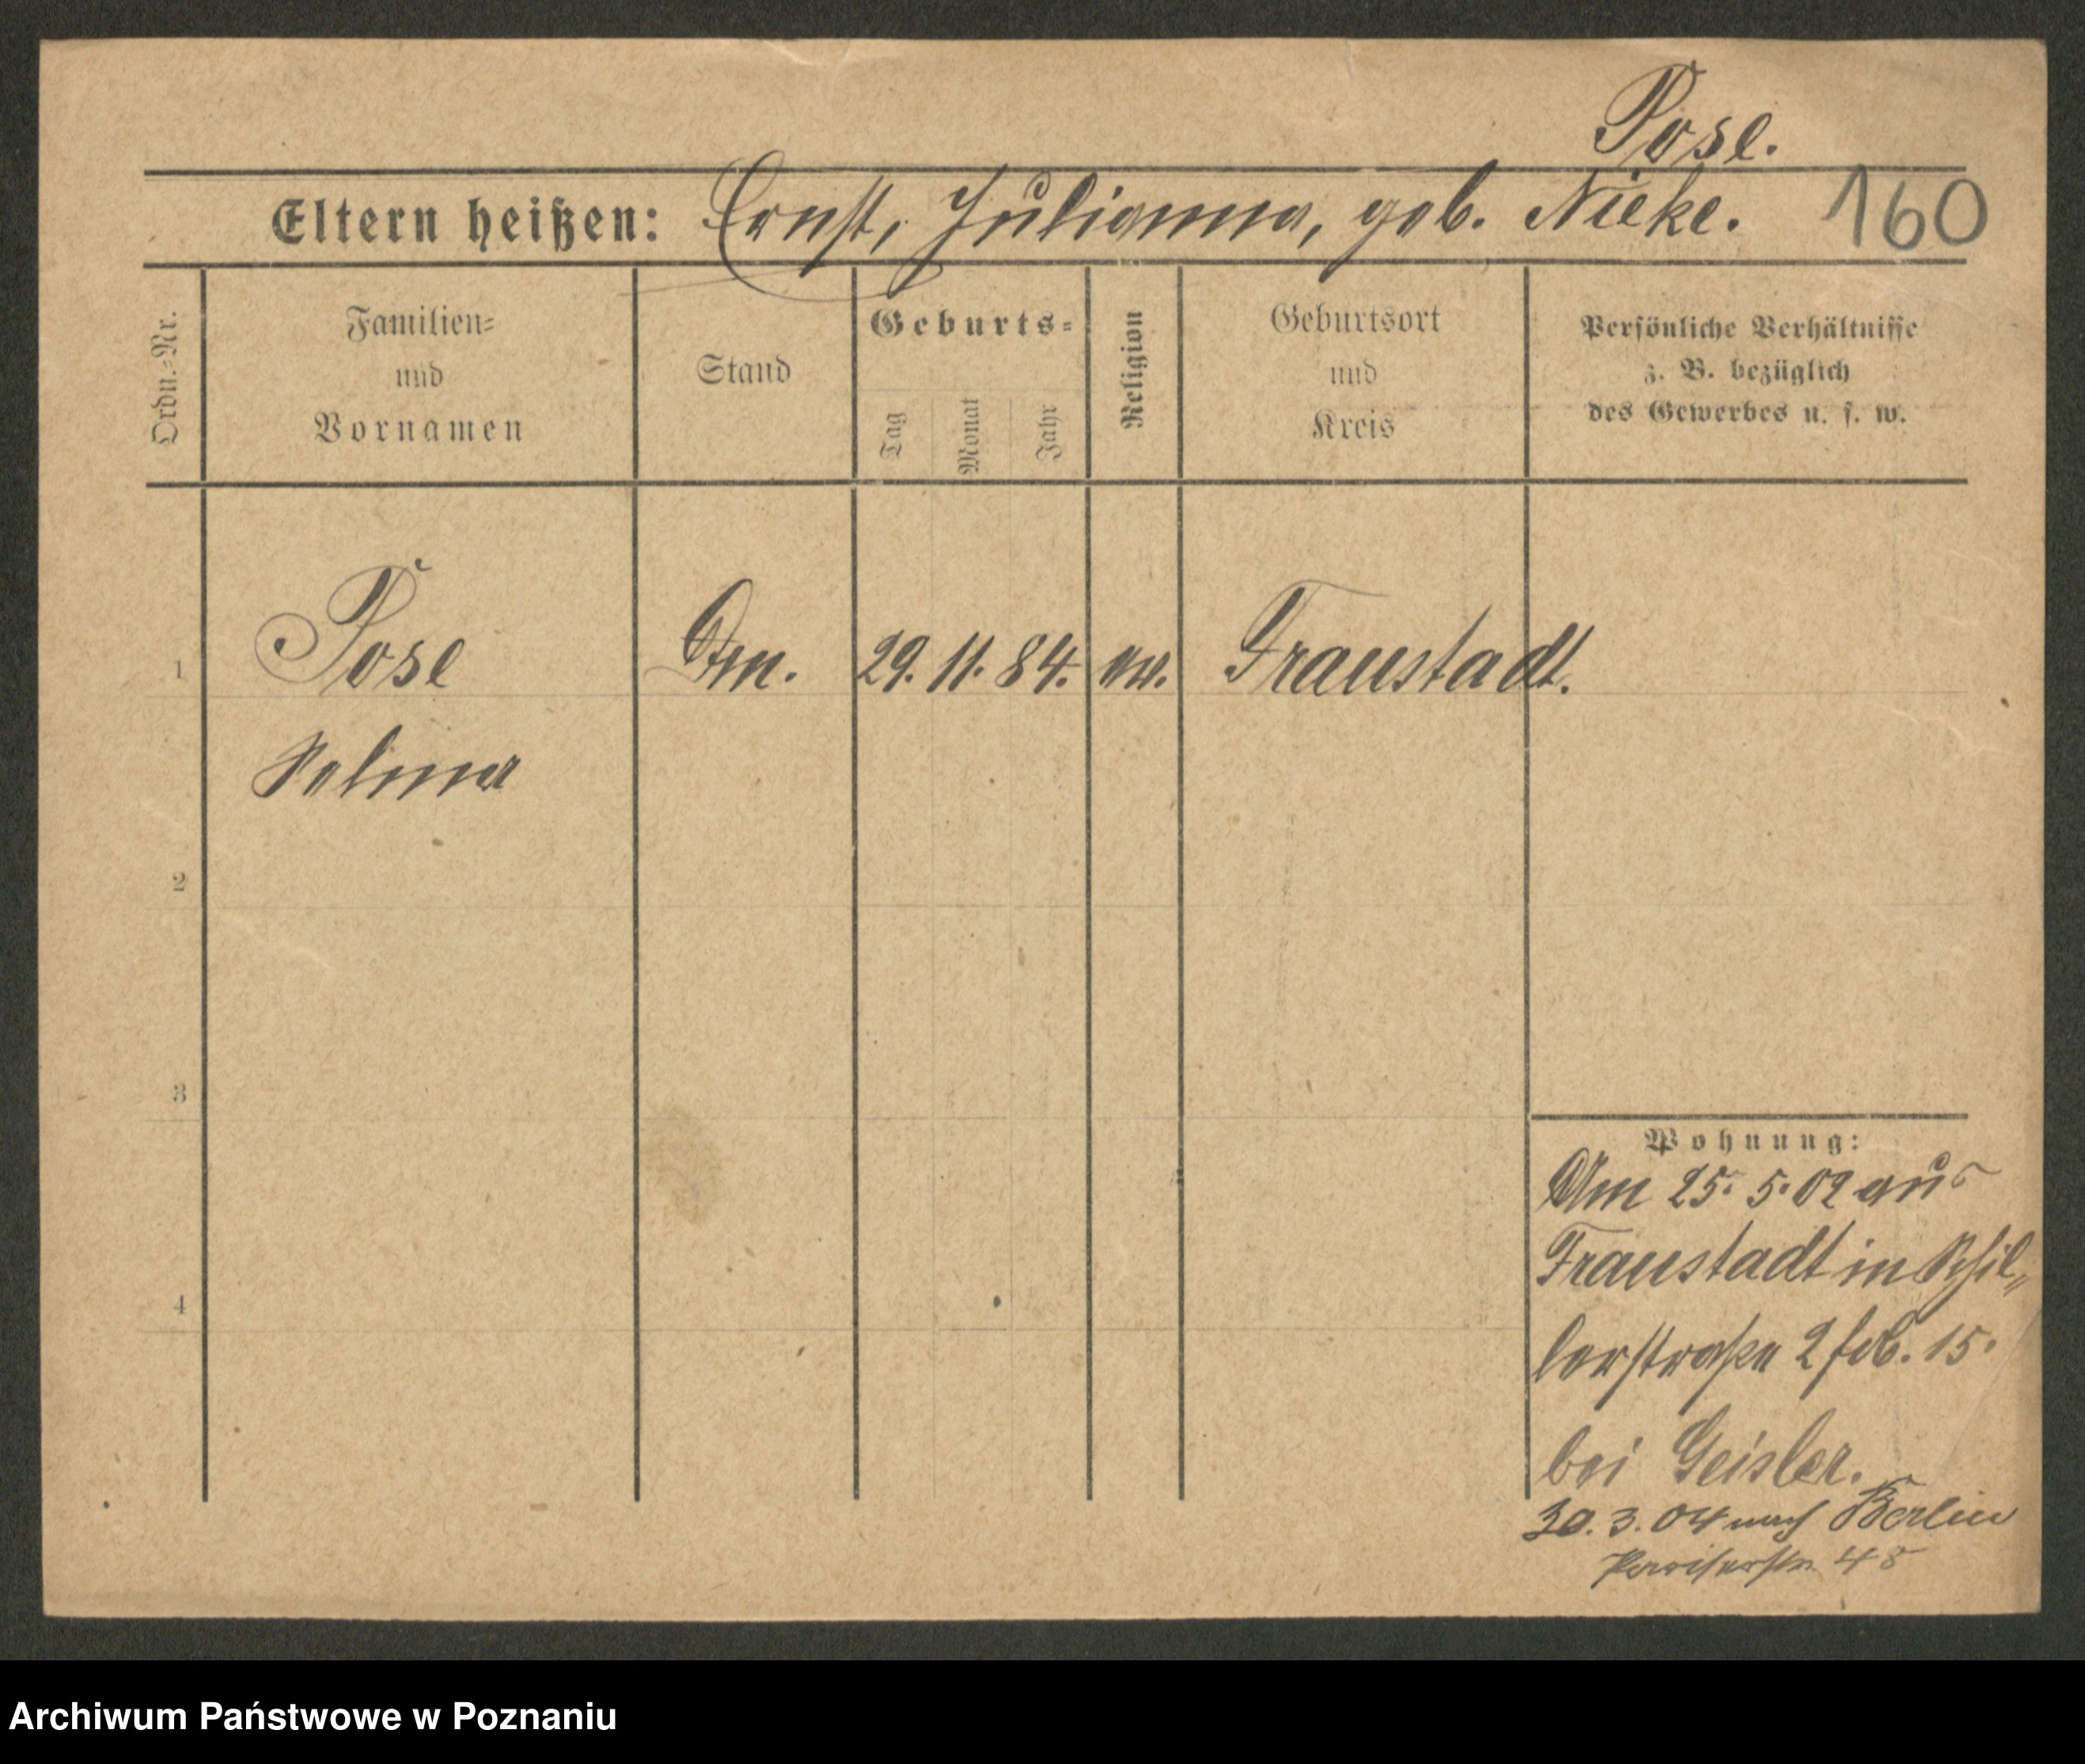 Pose.
Eltern heißen: Ernst, Julianna, geb. Nieke. 160
Ordn.-Nr.
Familien-
und
Vornamen
Stand
Geburts-
Tag
Monat
Jahr
Religion
Geburtsort
und
Kreis
Persönliche Verhältnisse
z. B. bezüglich
des Gewerbes u. s. w.
1 Pose 29. 11. 84. ev. Fraustadt.
Selma
2
3
4
Wohnung:
Am 25. 5. 02 aus
Fraustadt in Schil„
lerstraße 2 feb. 15.
bei Geisler.
30. 3. 04 nach Berlin
Pariserstr. 48
Archiwum Państwowe w Poznaniu